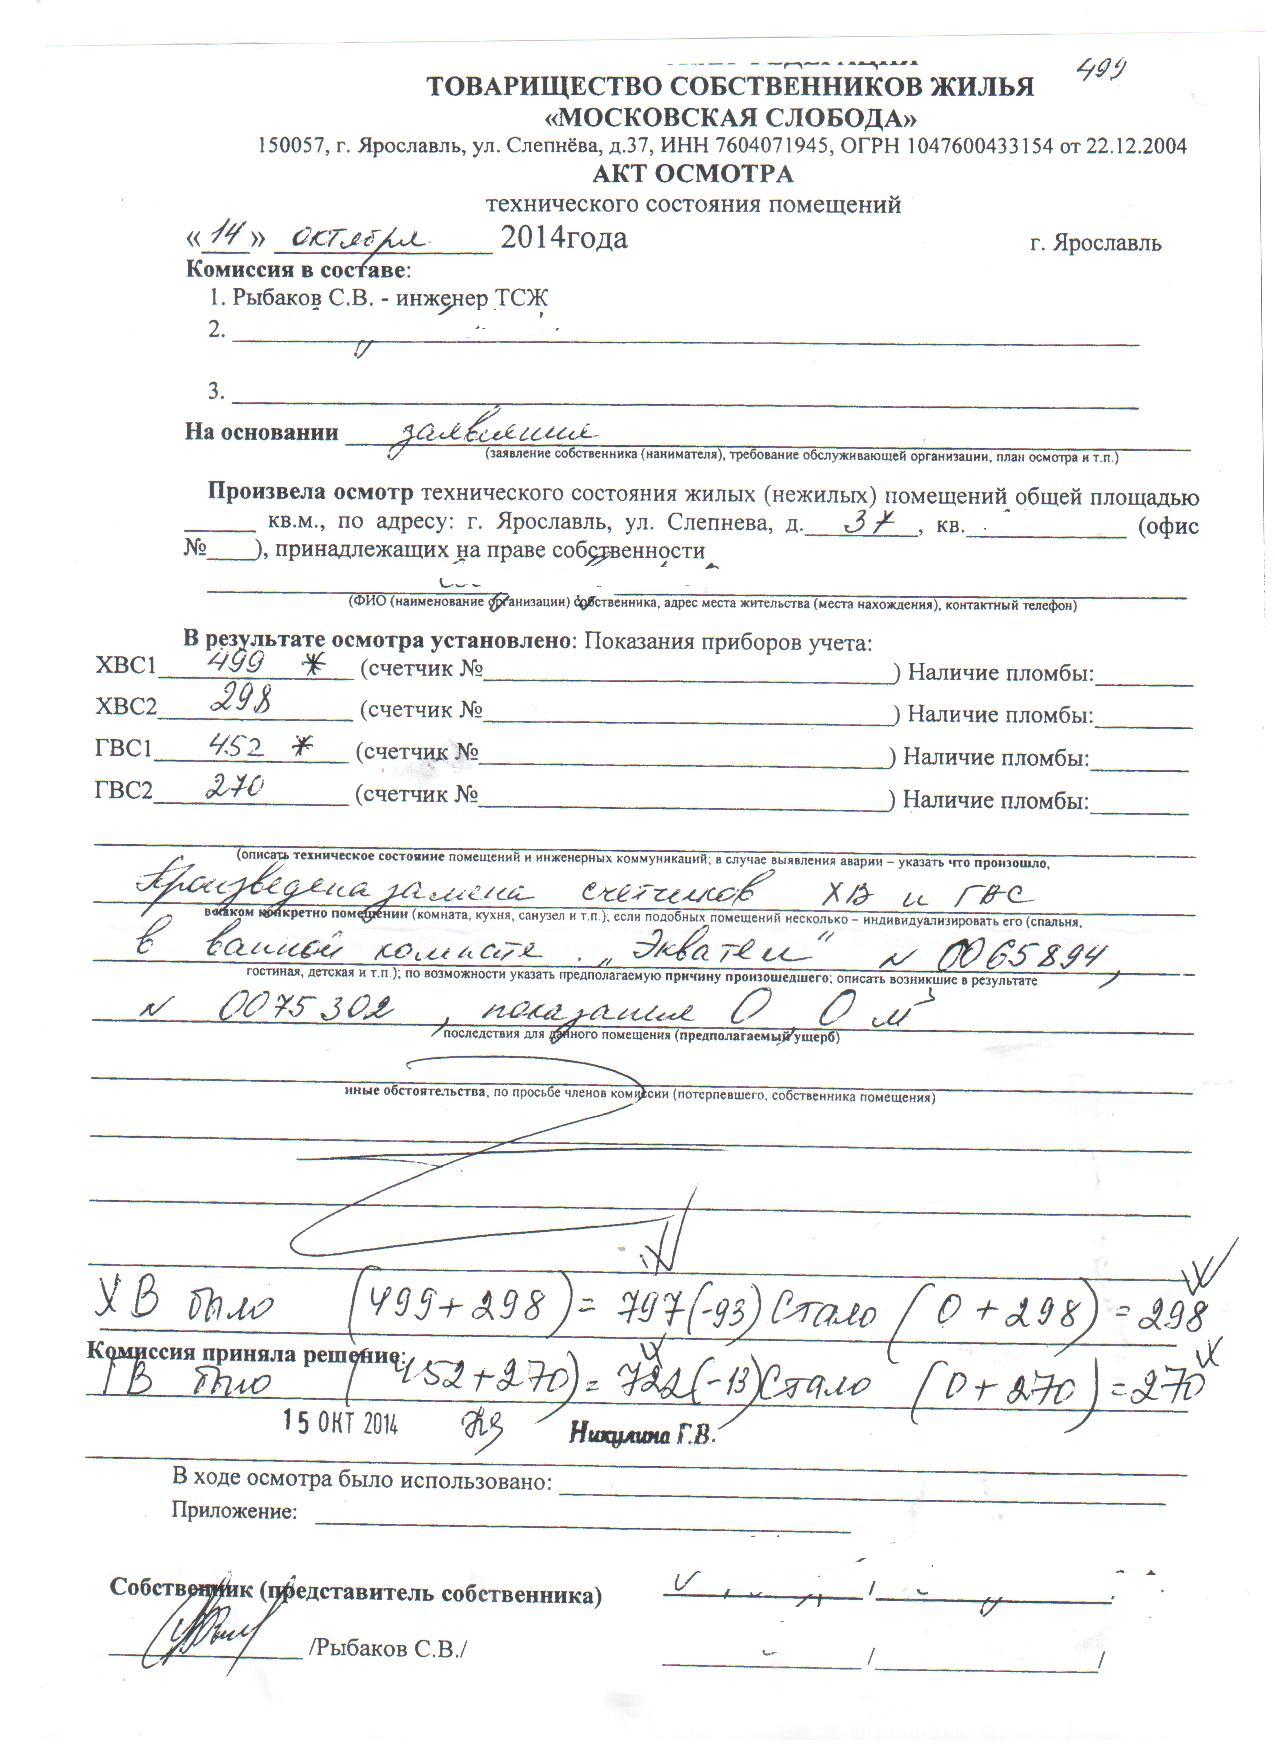 499
ТОВАРИЩЕСТВО СОБСТВЕННИКОВ ЖИЛЬЯ
«МОСКОВСКАЯ СЛОБОДА»
150057, г. Ярославль, ул. Слепнёва, д.37, ИНН 7604071945, ОГРН 1047600433154 от 22.12.2004
АКТ ОСМОТРА
технического состояния помещений
«14» октября 2014года г. Ярославль
Комиссия в составе:
1. Рыбаков С.В. - инженер ТСЖ
2.
3.
На основании заявления
(заявление собственника (нанимателя), требование обслуживающей организации, план осмотра и т.п.)
Произвела осмотр технического состояния жилых (нежилых) помещений общей площадью
кв.м., по адресу: г. Ярославль, ул. Слепнева, д. 37, кв. (офис
№____), принадлежащих на праве собственности
(ФИО (наименование организации) собственника, адрес места жительства (места нахождения), контактный телефон)
В результате осмотра установлено: Показания приборов учета:
ХВС1 499 * (счетчик №) Наличие пломбы:
ХВС2 298 (счетчик №) Наличие пломбы:
ГВС1 452 * (счетчик №) Наличие пломбы:
ГВС2 270 (счетчик №) Наличие пломбы:
(описать техническое состояние помещений и инженерных коммуникаций; в случае выявления аварии – указать что произошло,
Произведена замена счетчиков ХВ и ГВС
в каком конкретно помещении (комната, кухня, санузел и т.п.); если подобных помещений несколько – индивидуализировать его (спальня,
в ванной комнате. „Эквател“ № 0065894,
гостиная, детская и т.п.); по возможности указать предполагаемую причину произошедшего; описать возникшие в результате
№ 0075302, показания 0, 0 м³
последствия для данного помещения (предполагаемый ущерб)
иные обстоятельства, по просьбе членов комиссии (потерпевшего, собственника помещения)
ХВ было (499+298)=797(-93) Стало (0+298)=298
Комиссия приняла решение:
ГВ было (452+270)=722(-13) Стало (0+270)=270
15 ОКТ 2014 Никулина Г.В.
В ходе осмотра было использовано:
Приложение:
Собственник (представитель собственника) / /
/Рыбаков С.В./ / /